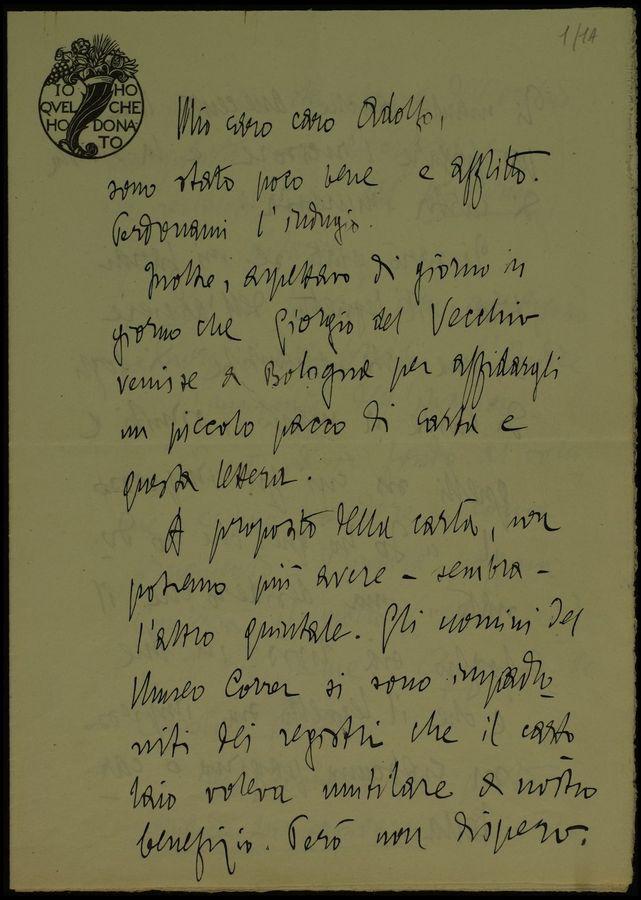 1/1A
IO HO
QVEL CHE
HO DONA
TO
Mio caro caro Adolfo,
sono stato poco bene e afflitto.
Perdonami l'indugio.
Inoltre, aspettavo di giorno in
giorno che Giorgio del Vecchio
venisse a Bologna per affidargli
un piccolo pacco di carta e
questa lettera.
A proposito della carta, non
potremo più avere - sembra -
l'altro quintale. Gli uomini del
Museo Correr si sono impadro_
niti dei registri che il carto
laio voleva mutilare a nostro
benefizio. Però non dispero.